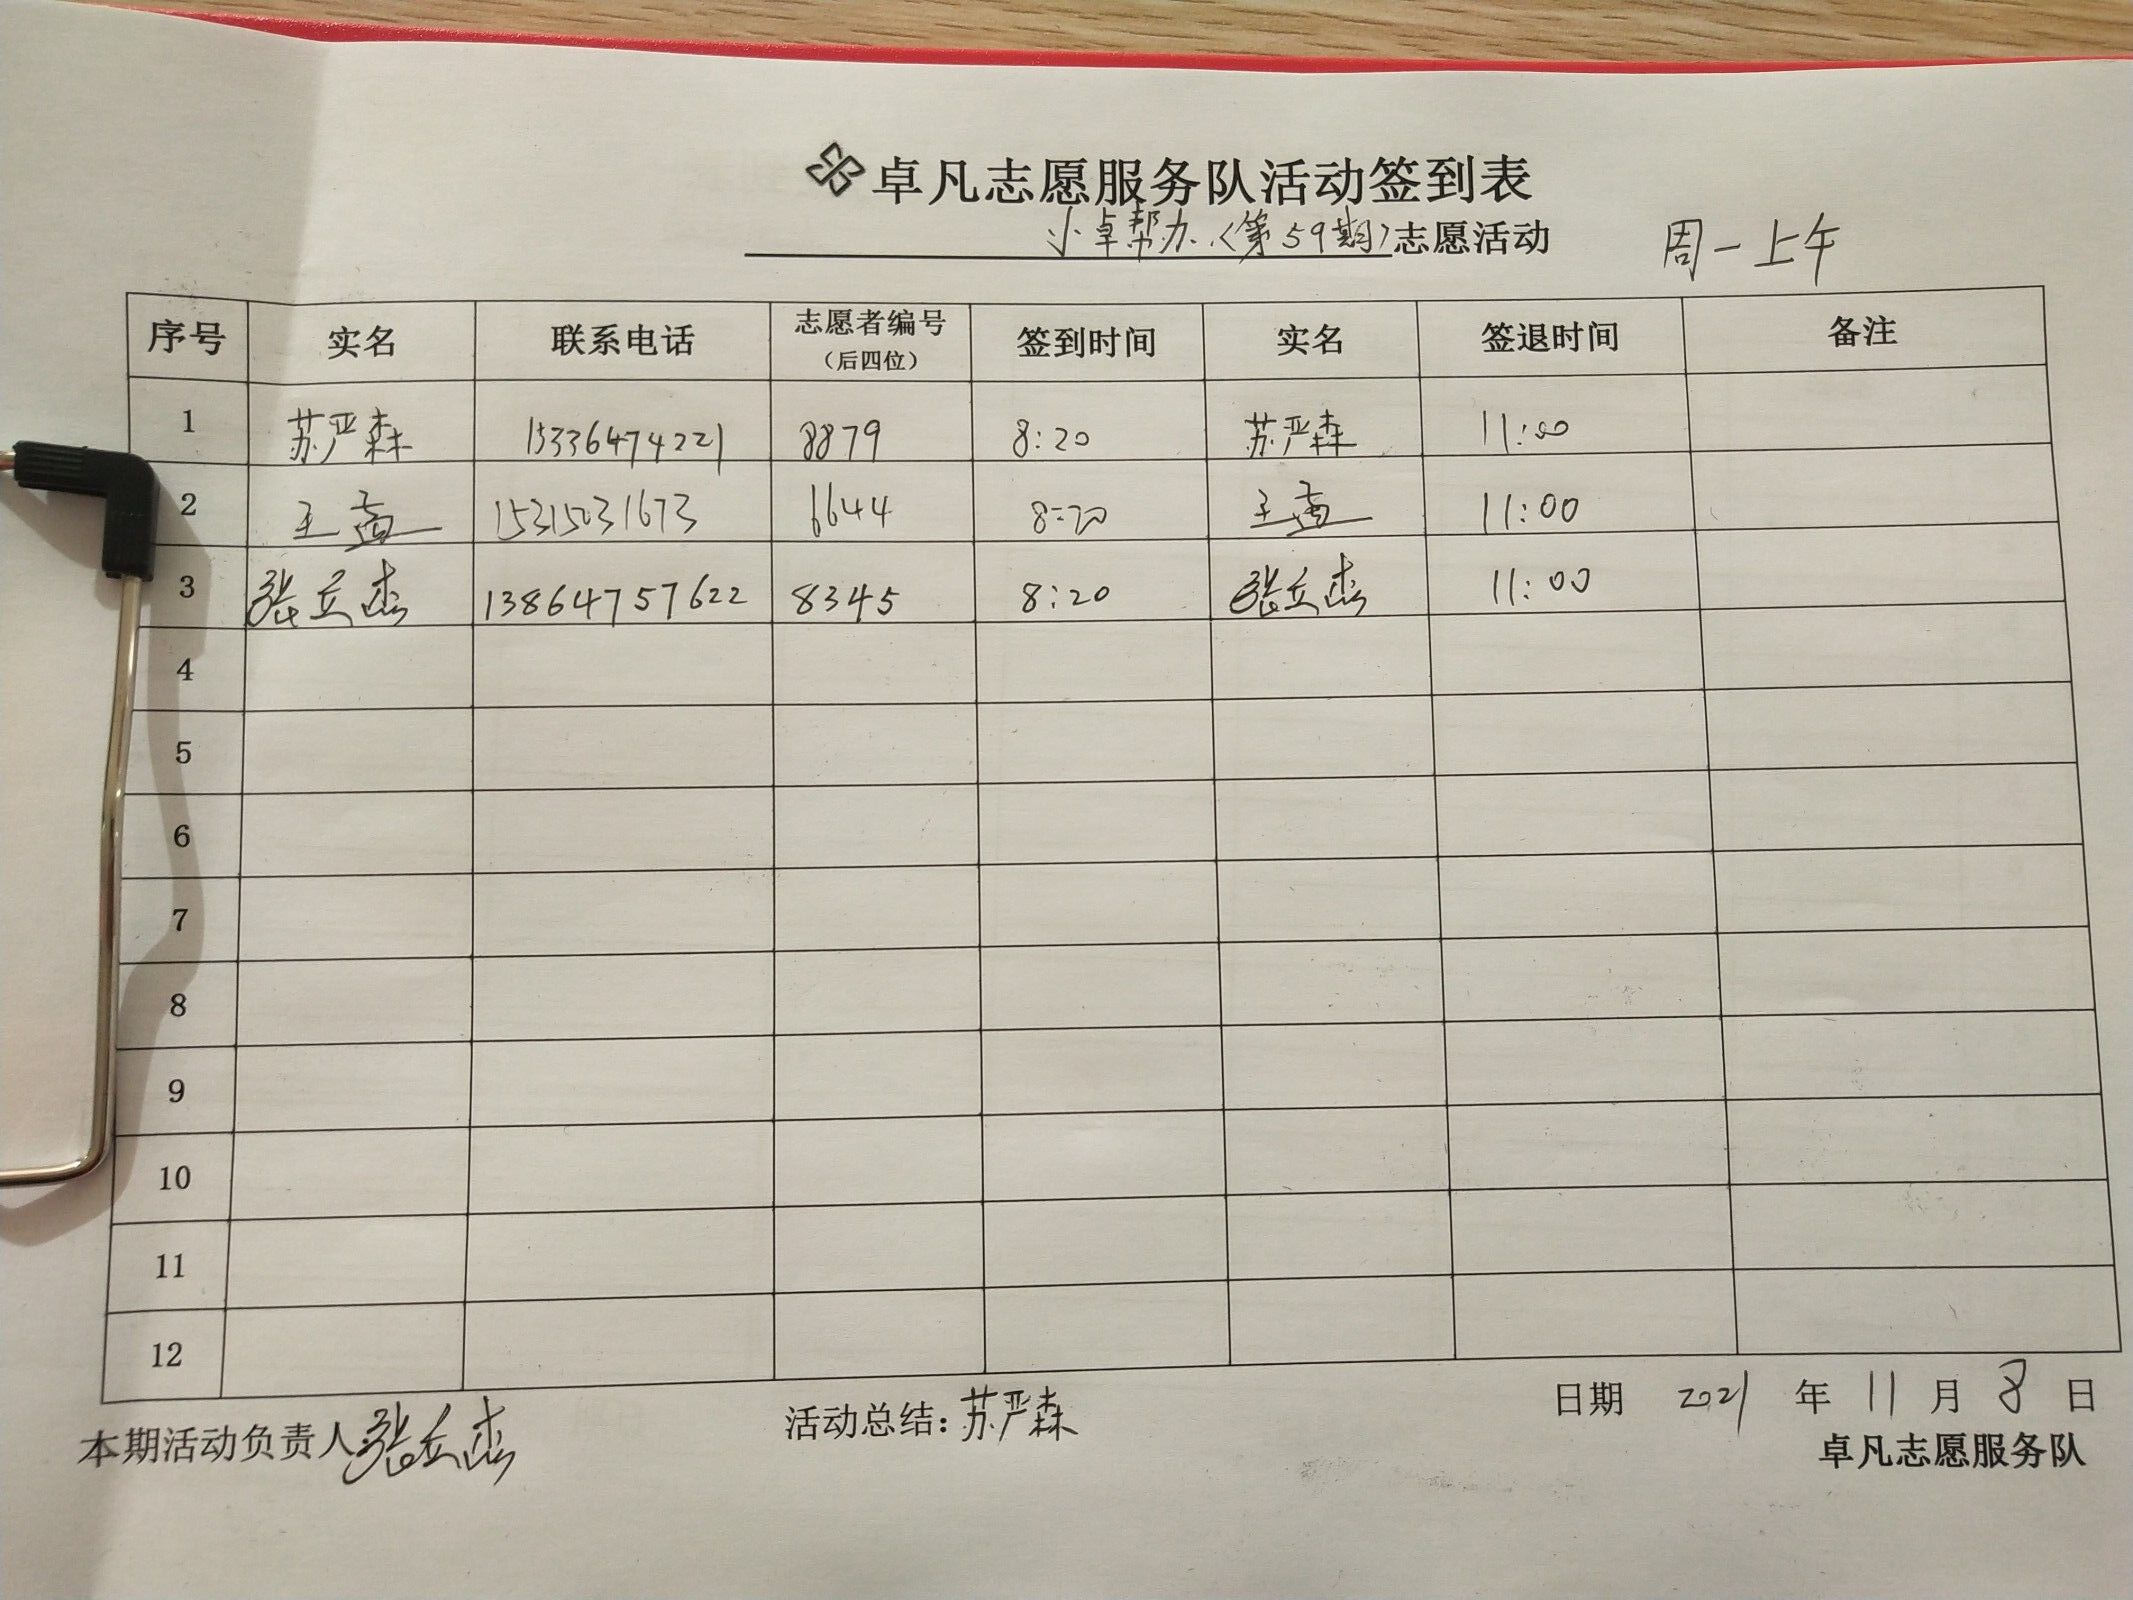 卓凡志愿服务队活动签到表
小卓帮办（第59期）志愿活动 周一上午
序号 实名 联系电话 志愿者编号（后四位） 签到时间 实名 签退时间 备注
1 苏严森 15336474221 8879 8:20 苏严森 11:00
2 王 15315031673 6644 8:20 王 11:00
3 张立杰 13864757622 8345 8:20 张立杰 11:00
4
5
6
7
8
9
10
11
12
本期活动负责人 张立杰 活动总结：苏严森 日期 2021 年 11 月 8 日
卓凡志愿服务队